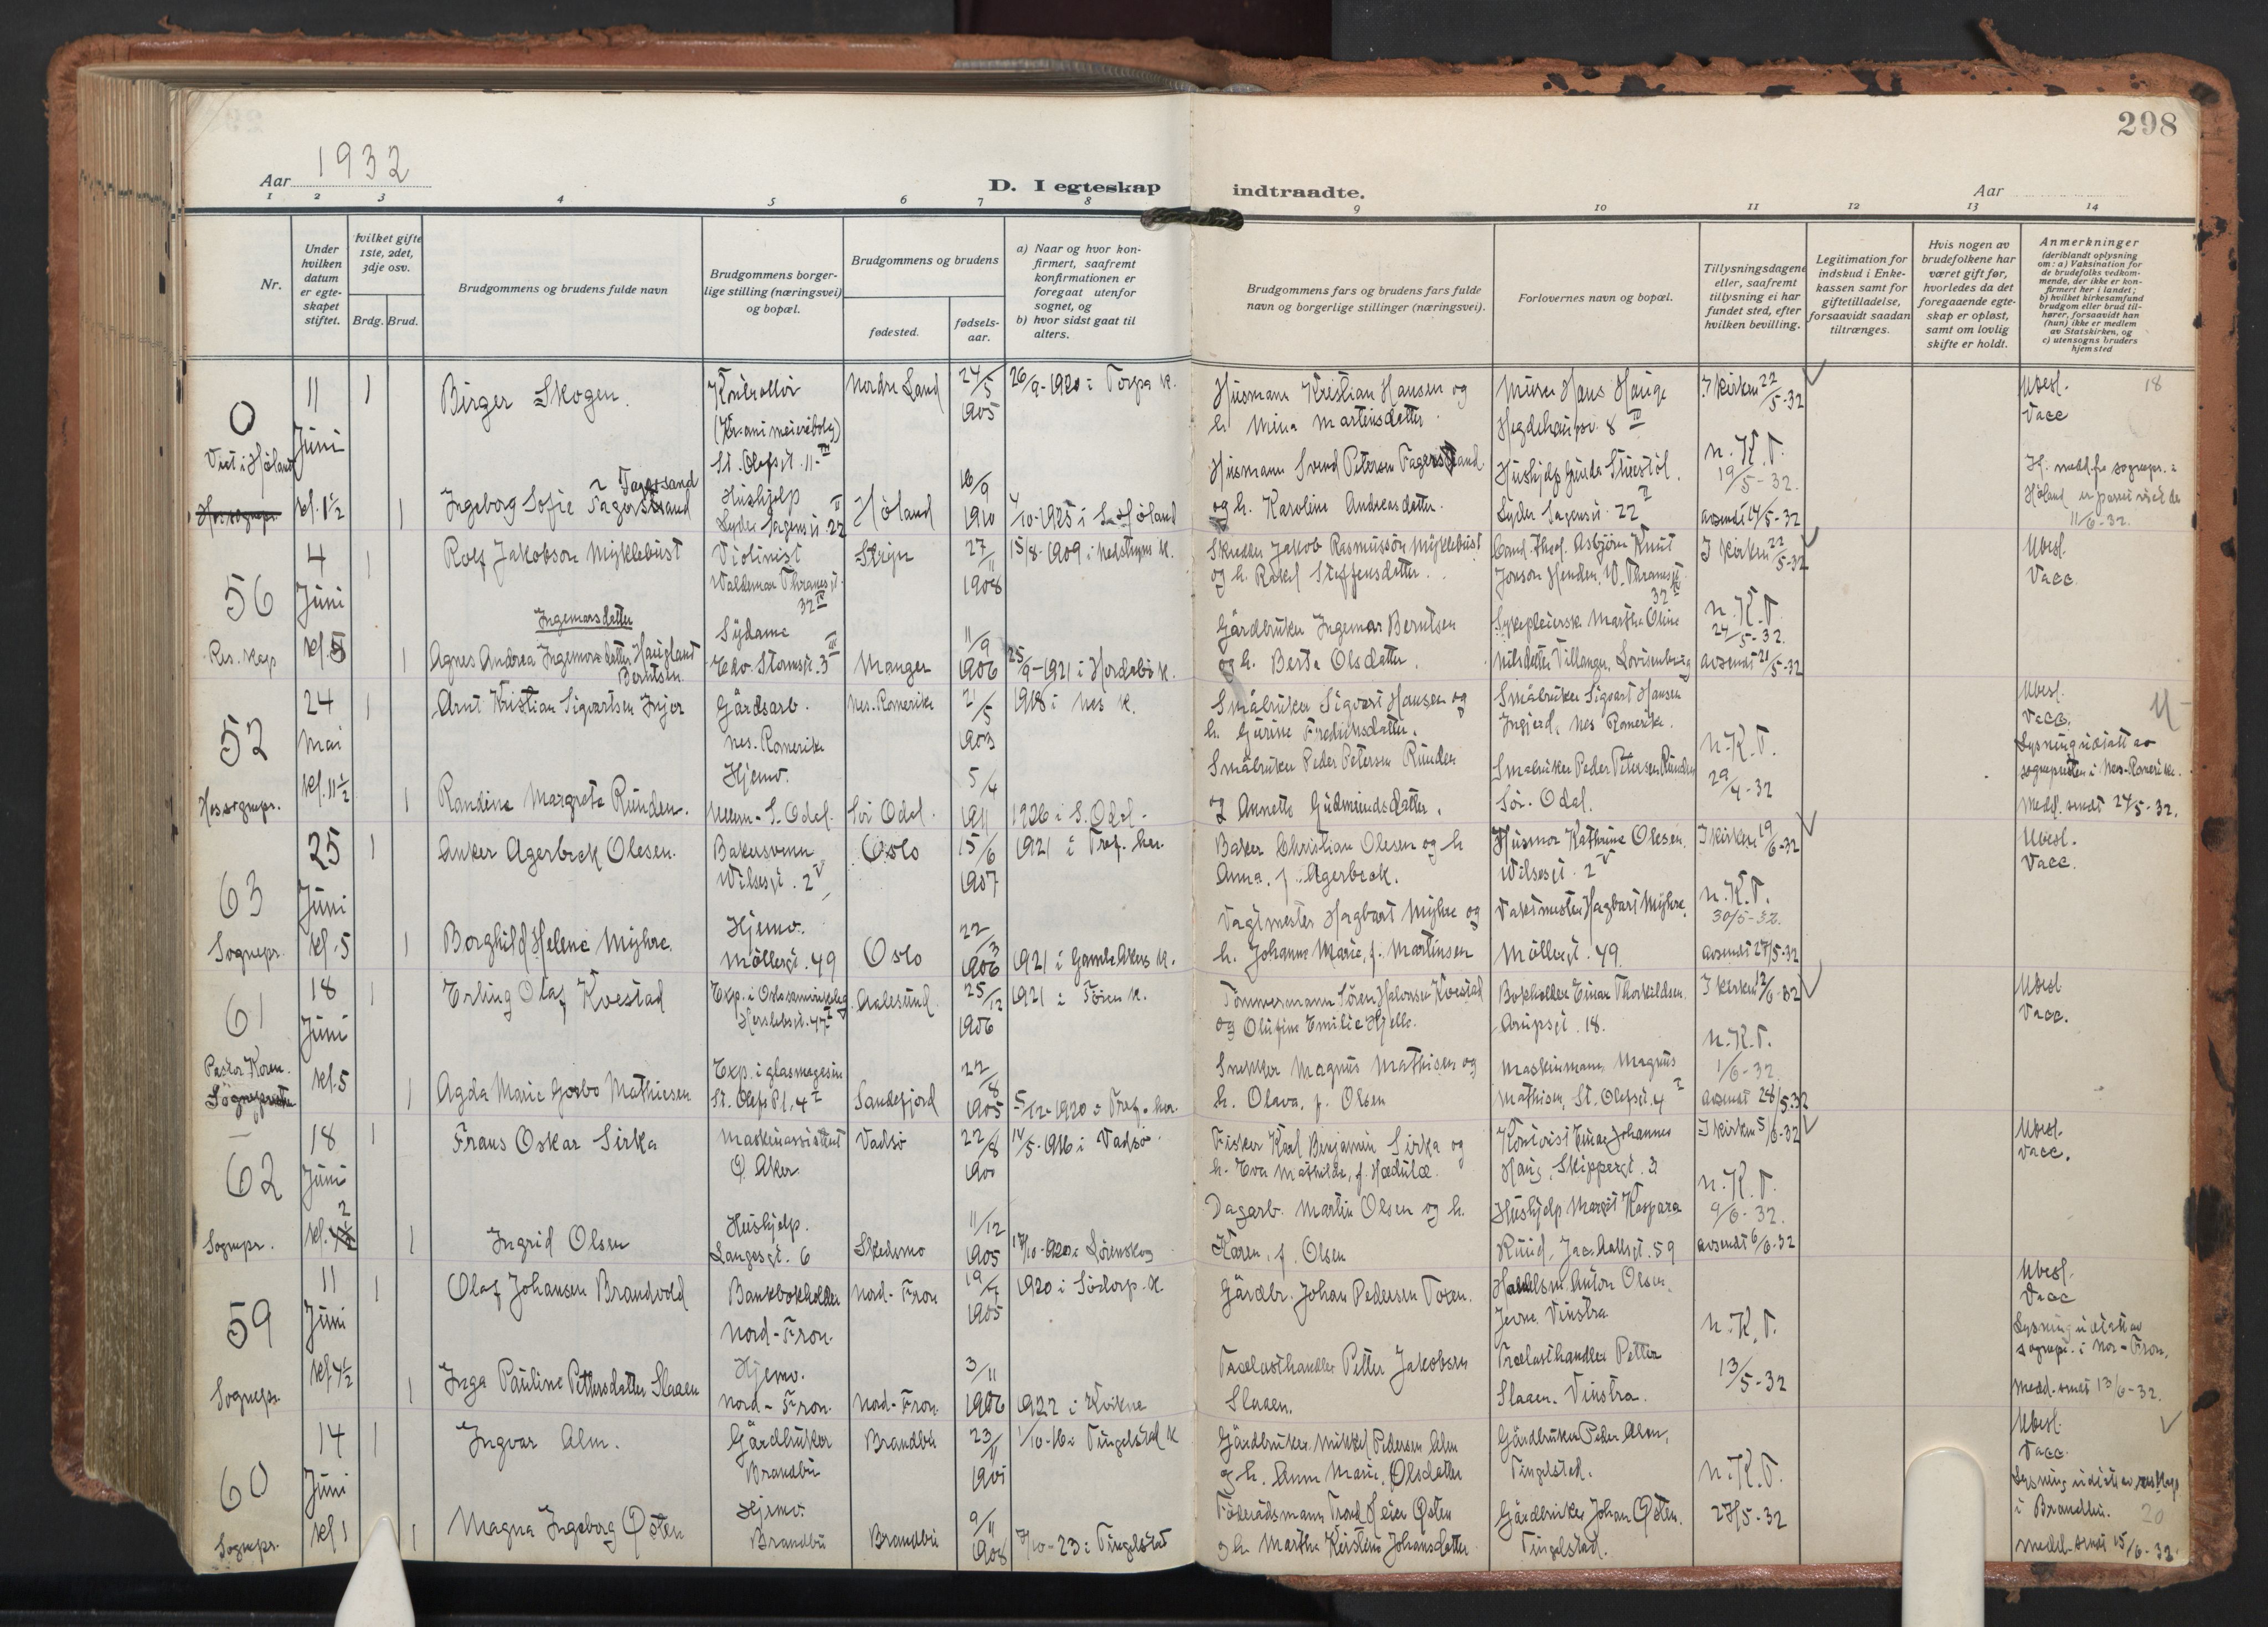 298
Aar 1932
D. I egteskap
indtraadte.
Aar
1 2 3 4 5 6 7 8
9 10 11 12 13 14
Nr.
Under hvilken datum er egteskapet stiftet.
hvilket gifte 1ste, 2det, 3dje osv.
Brdg. Brud.
Brudgommens og brudens fulde navn
Brudgommens borgerlige stilling (næringsvei) og bopæl.
Brudgommens og brudens
fødested.
fødselsaar.
a) Naar og hvor konfirmert, saafremt konfirmationen er foregaat utenfor sognet, og
b) hvor sidst gaat til alters.
Brudgommens fars og brudens fars fulde navn og borgerlige stillinger (næringsvei).
Forlovernes navn og bopæl.
Tillysningsdagene eller, saafremt tillysning ei har fundet sted, efter hvilken bevilling.
Legitimation for indskud i Enkekassen samt for giftetilladelse, forsaavidt saadan tiltrænges.
Hvis nogen av brudefolkene har været gift før, hvorledes da det foregaaende egteskap er opløst, samt om lovlig skifte er holdt.
Anmerkninger (deriblandt oplysning om: a) Vaksination for de brudefolks vedkommende, der ikke er konfirmert her i landet; b) hvilket kirkesamfund brudgom eller brud tilhører, forsaavidt han (hun) ikke er medlem av Statskirken, og c) utensogns bruders hjemsted
0
Viet i Höland
11 Juni kl. 1½
1
Birger Skogen.
Kontrollör
St. Olafsgt. 11 III
Nordre Land
24/5 1905
26/9-1920 i Torpa k.
Husmann Kristian Hansen og
h. Mina Martinsdatter.
Murer Hans Hauge
Hegdehaugsv. 8 III
I kirken 22/5-32
Ubesl.
Vacc
18
Ingeborg Sofie Fagerstrand
Hushjelp
Lyder Sagensgt. 22 II
Höland
16/9 1910
4/10-1925 i S. Höland
Husmann Svend Petersen Fagerstrand
og h. Karoline Andreasdatter.
Lyder Sagensgt. 22 II
n. K. T.
19/5-32.
avsendt 14/5-32
11/6-32.
56
Res. kap
4 Juni kl. 5
Rolf Jakobson Myklebust
Violinist
Waldemar Thranesgt. 32 IV
Stryn
27/11 1908
15/8-1909 i Nedstryns k.
Skredder Jakob Rasmussön Myklebust
og h. Rakel Steffensdatter.
Cand. theol. Asbjörn Knut
Jonson Henden, W. Thranesgt. 32 IV
I kirken 22/5-32
Ubesl.
Vacc
Ingemarsdatter
Agnes Andrea Ingemarsdatter Haugland
Berntsen
Sydame
Edv. Stormsgt. 3 III
Manger
11/9 1906
25/9-1921 i Hordabö k.
Gårdbruker Ingemar Berntsen
og h. Berta Olsdatter.
Sykepleiersk. Martha Oline
Nilsdatter Villanger, Lovisenberg
n. K. T.
24/5-32.
avsendt 21/5-32
52
Hos sognepr.
24 Mai kl. 11½
Arnt Kristian Sigvartsen Injer
Gårdsarb.
Nes. Romerike
Nes. Romerike
21/5 1903
1918 i Nes k.
Småbruker Sigvart Hansen og
h. Gurine Fredriksdatter.
Småbruker Sigvart Hansen
Ingjerd, Nes Romerike.
Ubesl.
Vacc.
Lysning utstatt av
sognepresten i Nes-Romerike.
Medd. sendt 24/5-32.
Randine Margrete Runden.
Hjemv.
S. Odal.
Sör Odal.
5/4 1911
1926 i S. Odal.
Småbruker Peder Petersen Runden
og Annette Gudmundsdatter.
Småbruker Peder Petersen Runden
Sör. Odal.
n. K. T.
29/4-32
63
Sognepr.
25 Juni kl. 5
Anker Agerbeck Olesen.
Bakersvenn
Wilsesgt. 2 V
Oslo
15/6 1907
1921 i Tref. her.
Baker Christian Olesen og h
Anna, f. Agerbeck.
Husmor Kathrine Olesen.
Wilsesgt. 2 V
I kirken 19/6-32
Ubesl.
Vacc.
Borghild Helene Myhre.
Hjemv.
Möllergt. 49
Oslo
22/3 1906
1921 i Gamle Akers k.
Vagtmester Hagbart Myhre og
h. Johanne Marie, f. Martinsen
Vaktmester Hagbart Myhre.
Möllergt. 49.
n. K. T.
30/5-32.
avsendt 27/5-32
61
Pastor Koren.
18 Juni kl. 5
Erling Olaf Kvestad
Herslebsgt. 47 I
Aalesund.
25/12 1906
1921 i Töien k.
Tömmermann Sören Halvorsen Kvestad
og Olufine Emilie Hjelle.
Bokholder Einar Thorkildsen.
Arupsgt. 18.
I kirken 12/6-32
Ubesl
Vacc.
Agda Marie Gorbo Mathiesen
Exp. i glasmagasin
St. Olafs Pl. 4 I
Sandefjord
22/8 1905
5/12-1920 i Tref. her.
Snekker Magnus Mathisen og
h. Olava, f. Olsen
Maskinmann Magnus
Mathisen, St. Olafsgt. 4 I
n. K. T.
1/6-32.
avsendt 28/5-32
62
Sognepr.
18 Juni kl. 2
Frans Oskar Sirka
Maskinassistent
Ö. Aker
Vadsö
22/8 1900
14/5-1916 i Vadsö.
Fisker Karl Benjamin Sirka og
h. Eva Mathilde, f. Hædulæ.
Kontorist Einar Johannes
Haug, Skippergt. 3
I kirken 5/6-32
Ubesl.
Vacc.
Ingrid Olsen
Hushjelp.
Langesgt. 6
Skedsmo
11/12 1905
17/10-1920 i Lörenskog
Dagarb. Martin Olsen og h.
Karen, f. Olsen
Hushjelp Margit Kaspara
Ruud, Jac. Aallsgt. 59
n. K. T.
9/6-32.
avsendt 6/6-32
59
Sognepr.
11 Juni kl. 4½
Olaf Johansen Brandvold
Bankbokholder
Nord-Fron.
Nord-Fron
19/7 1905
1920 i Södorp. k.
Gårdbr. Johan Pedersen Toxen.
Handelsm. Anton Olsen
Jevne. Vinstra.
Ubesl.
Vacc
Lysning utstatt av
sognepr. i Nor-Fron.
Medd. sendt 13/6-32.
Inga Pauline Pettersdatter Slaaen
Hjemv.
Nord-Fron.
Nord-Fron.
3/11 1906
1922 i Kvikne
Trælasthandler Petter Jakobsen
Slaaen.
Trælasthandler Petter
Slaaen. Vinstra.
n. K. T.
13/5-32
60
Sognepr.
14 Juni kl 1
Ingvar Alm.
Gårdbruker
Brandbu
Brandbu
23/11 1901
1/10-16 i Tingelstad k
Gårdbruker Mikkel Pedersen Alm
og h. Anne Marie Olsdatter
Gårdbruker Peder Alm,
Tingelstad.
Ubesl.
Vacc.
i Brandbu.
20
Medd. sendt 15/6-32
Magna Ingeborg Östen
Hjemv.
Brandbu
Brandbu
9/11 1908
7/10-23 i Tingelstad
Föderådsmann Trond Leier Östen
og h. Marthe Kirstine Johansdatter
Gårdbruker Johan Östen.
Tingelstad.
n. K. T.
27/5-32